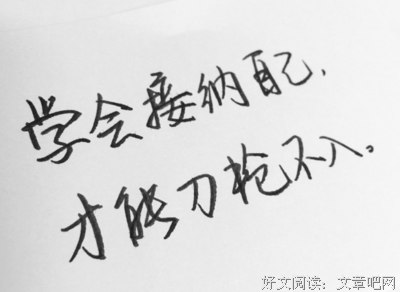 学会接纳自己，
才能刀枪不入。
好文阅读：文章吧网